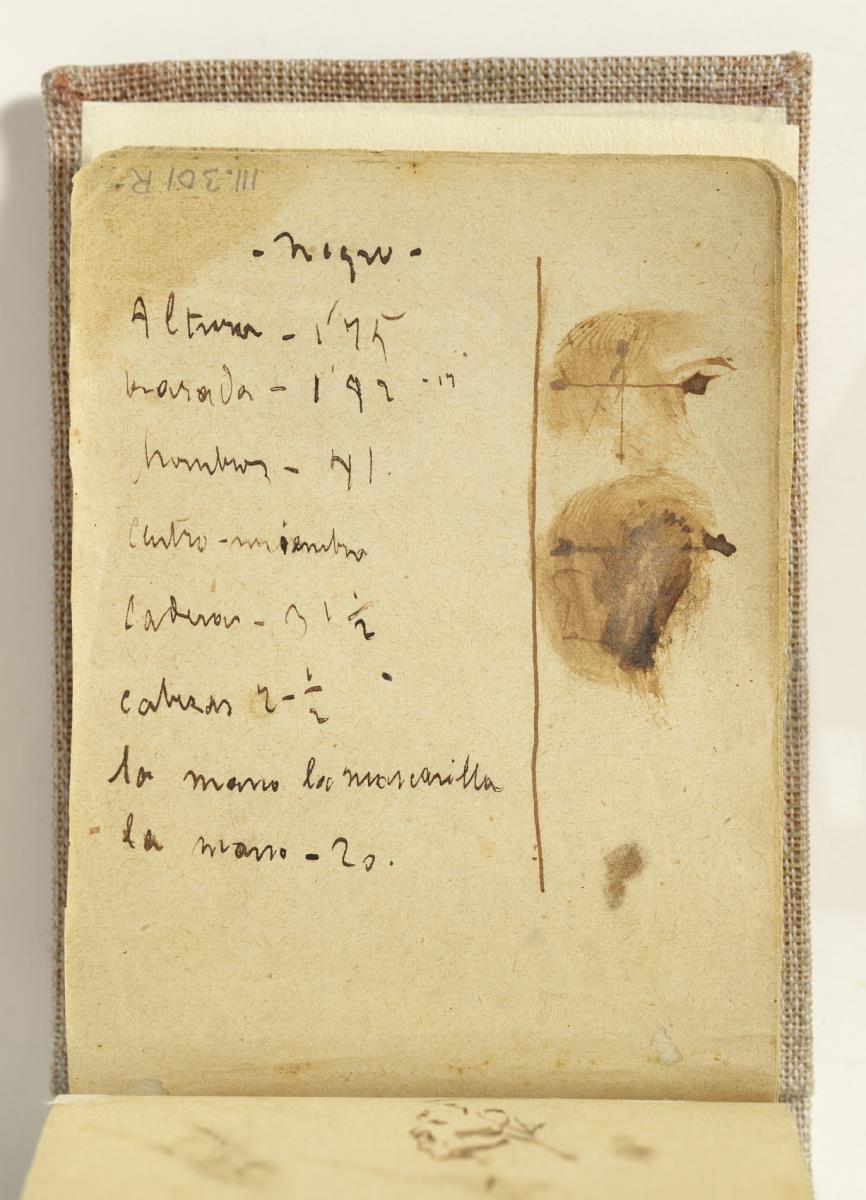 III.301 R
- Negro -
Altura - 1'75
brasada - 1'92 - 17
hombros - 41.
Centro - miembro
Caderas - 31 1/2
cabezas 7 - 1/2
la mano la mascarilla
la mano - 20.